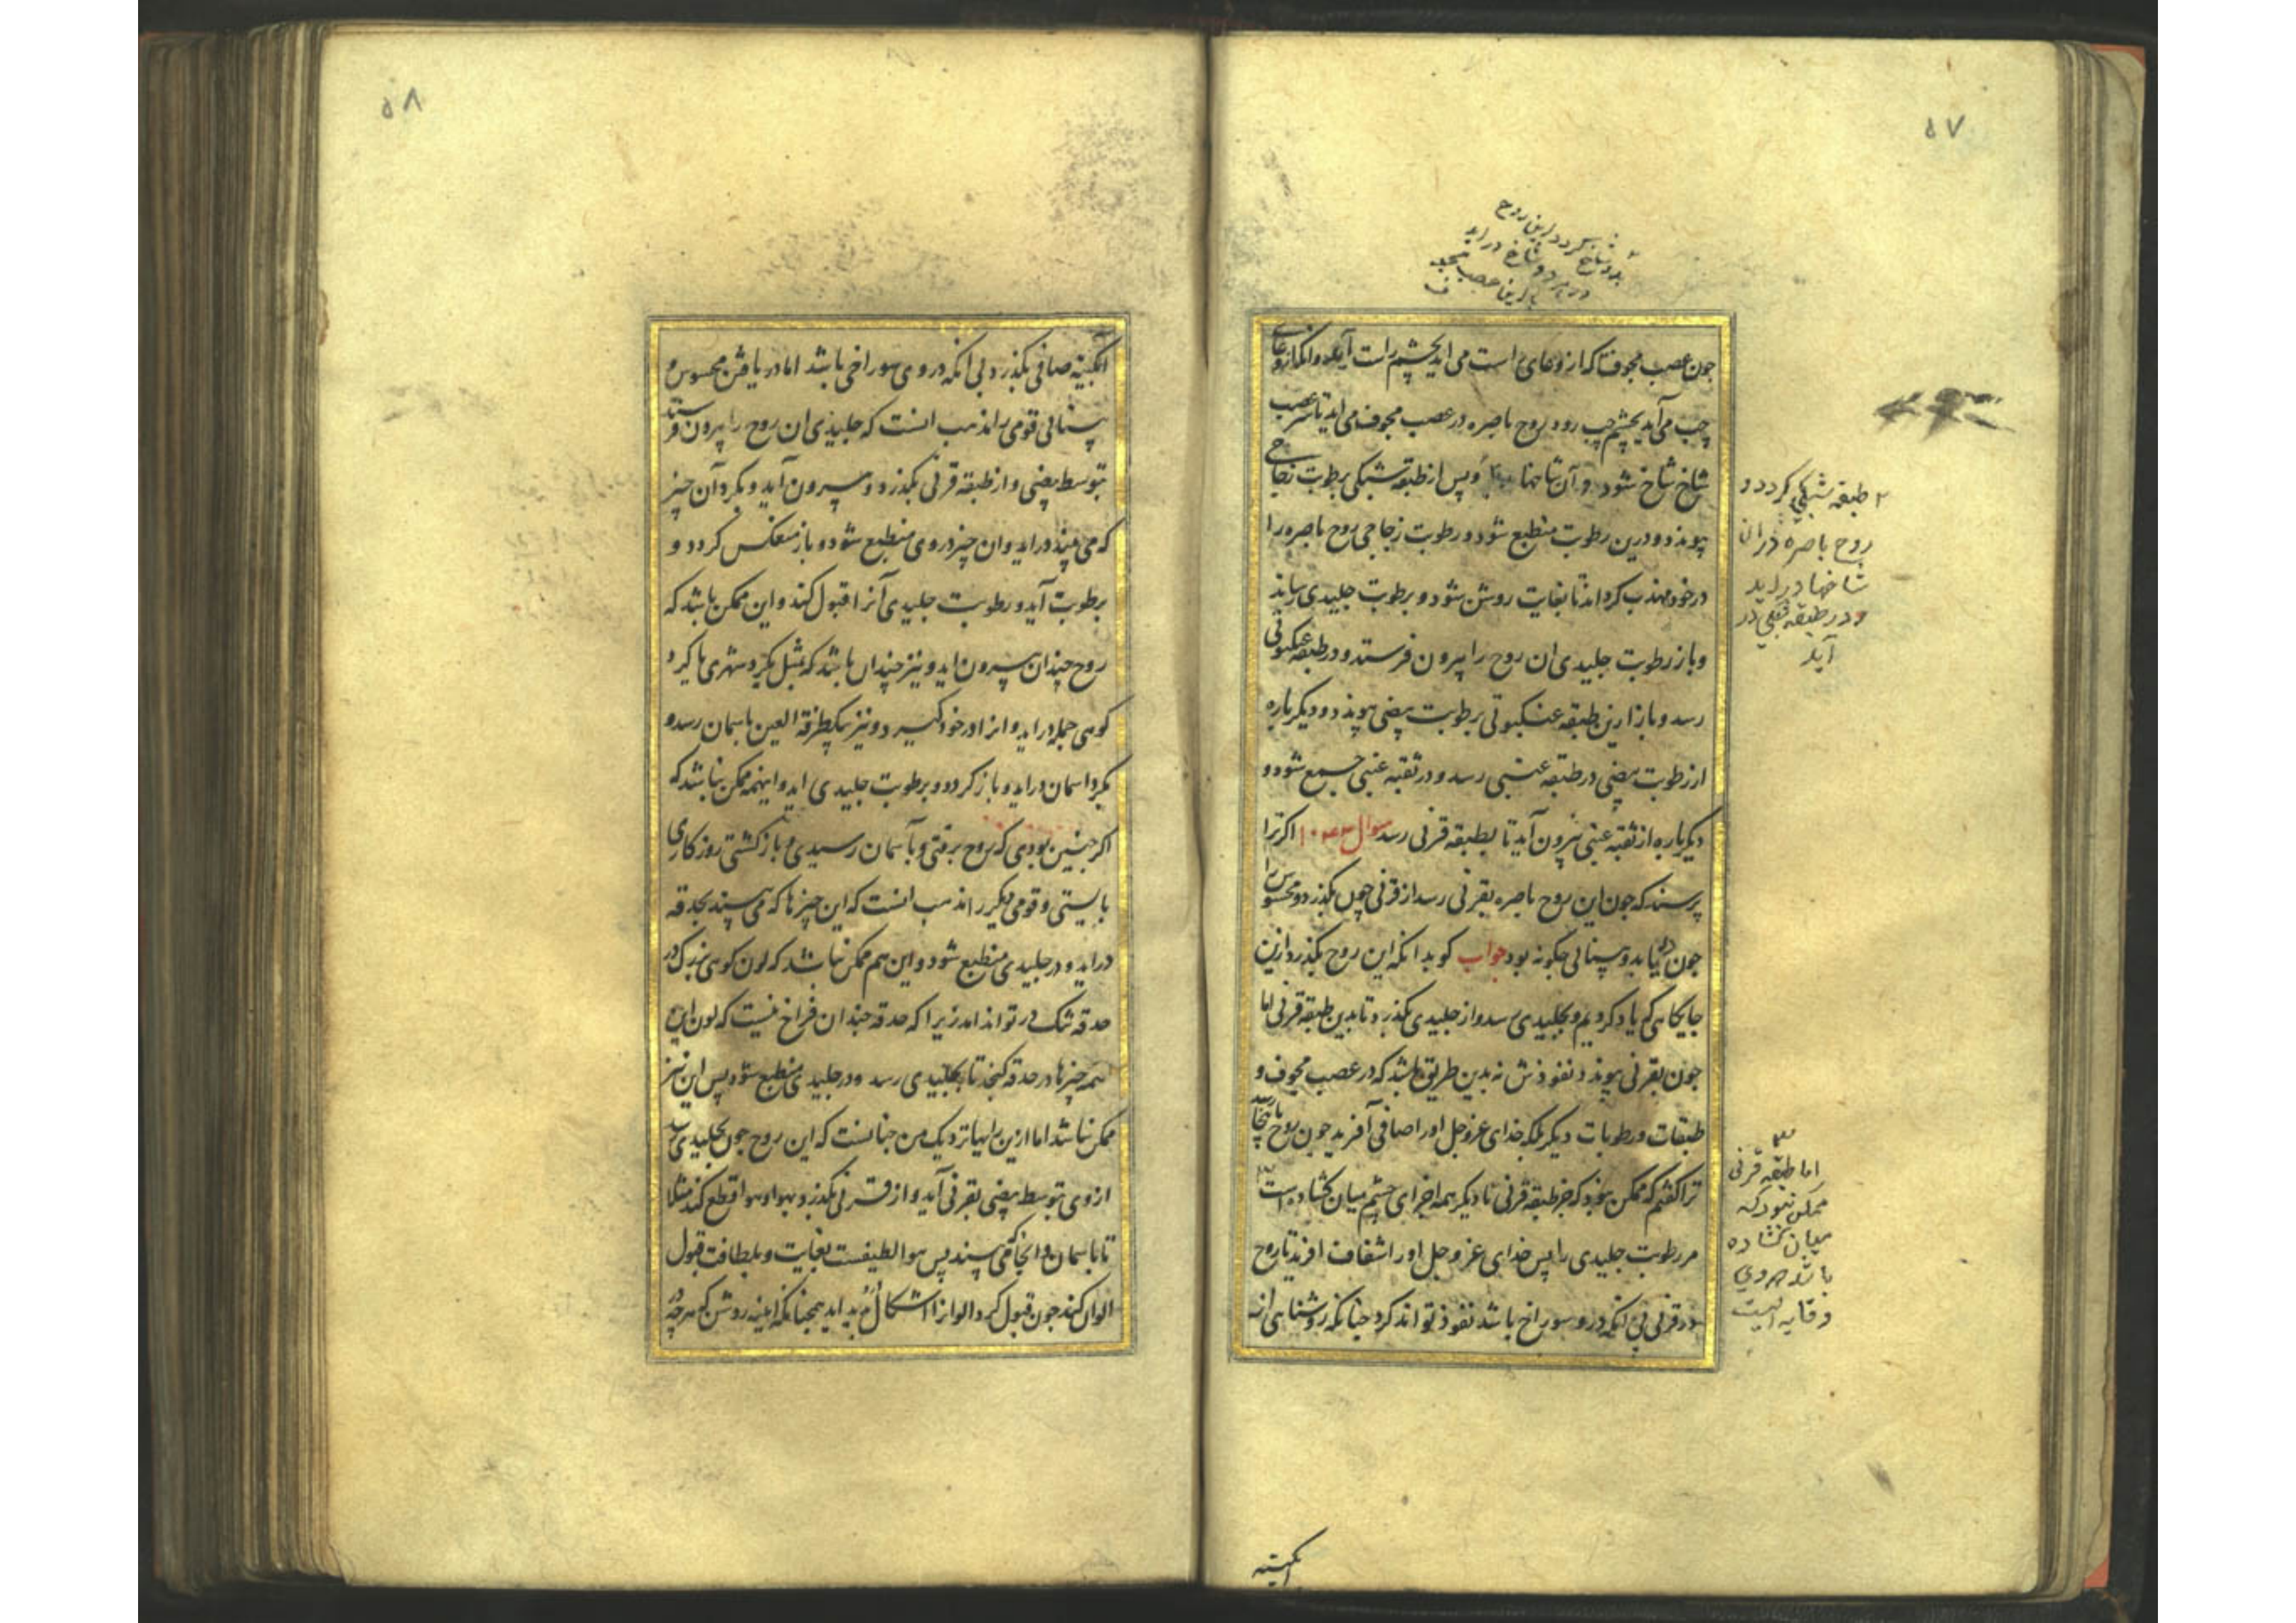 ۵۷
بدو شاخ کردد این روح
در هر دو شاخ در اید
باز این عصب مجوف
جون عصب مجوف تا که از وعای است می اید بچشم راست آید و انکه از وعای
چب می آید بچشم چب رود روح باصره در عصب مجوف می اید تا سر عصب
شاخ شاخ شود و آن شاخها و پس از طبقه شبکی برطوبت زجاجی
پیوندد و درین رطوبت منطبع شود و رطوبت زجاجی روح باصره را
در خود مهذب کرداند تا بغایت روشن شود و برطوبت جلیدی رساند
و باز رطوبت جلیدی ان روح را بیرون فرستد و در طبقه عنکبوتی
رسد و باز ازین طبقه عنکبوتی برطوبت بیضی پیوندد و دیکرباره
از رطوبت بیضی در طبقه عنبی رسد و در ثقبه عنبی جمع شود و
دیکرباره از ثقبه عنبی بیرون آید تا بطبقه قرنی رسد سوال اکر ترا
پرسند که جون این روح باصره بقرنی رسد از قرنی جون بکذرد و محسوس را
جون دریابد و بینائی جکونه بود جواب کو بدانکه این روح بکذرد ازین
جایکاهی که یاد کردیم و بجلیدی رسد و از جلیدی بکذرد تا بدین طبقه قرنی اما
جون بقرنی پیوندد نفوذش نه بدین طریق باشد که در عصب مجوف و
طبقات و رطوبات دیکر بلکه خدای عزوجل او را صافی آفرید جون روح بانجا رسد
ترا کفتم که ممکن بود که جز طبقه قرنی تا دیکر همه اجزای چشم میان کشاده است
مر رطوبت جلیدی را پس خدای عز و جل او را شفاف افرید تا روح
در قرنی بی انکه درو سوراخ باشد نفوذ تواند کرد جنانکه روشنایی از
۲ طبقه شبکی کردد و
روح باصره در ان
شاخها در اید
و در طبقه شبکی در
آید
۳
اما طبقه قرنی
ممکن نبود که
میان کشاده
باشد که وی
وقایه است
ابکینه
۵۸
آبکینه صافی بکذرد بی انکه در وی سوراخی باشد اما دریافتن محسوس و
بینائی قومی را مذهب انست که جلیدی ان روح را بیرون فرستد
بتوسط بیضی و از طبقه قرنی بکذرد و بیرون آید و بکرد آن جیز
که می بیند در اید و ان جیز در وی منطبع شود و باز منعکس کردد و
برطوبت آید و رطوبت جلیدی آنرا قبول کند و این ممکن نباشد که
روح چندان بیرون اید و نیز چندان باشد که بمثل بکرد شهری یا کرد
کوهی جمله در اید و انرا در خود کیرد و نیز بیکطرفة العین باسمان رسد و
بکرد اسمان در اید و باز کردد و برطوبت جلیدی اید و اینهمه ممکن نباشد که
اکر جنین بودی که روح برفتی و بآسمان رسیدی و باز کشتی روزکاری
بایستی و قومی دیکر را مذهب انست که این جیزها که می بیند بحدقه
در اید و در جلیدی منطبع شود و این هم ممکن نباشد که لون کوهی بزرک در
حدقه تنک در تواند امد زیرا که حدقه جندان فراخ نیست که لون این
همه جیزها در حدقه کنجد تا بجلیدی رسد و در جلیدی منطبع شود پس این نیز
ممکن نباشد اما ازین رایها نزدیک من جنانست که این روح جون بجلیدی رسد
از وی بتوسط بیضی بقرنی آید و از قرنی بکذرد و بهوا و هوا قطع کند مثلا
تا باسمان و انجا که می بیند پس هوا لطیفست بغایت و بلطافت قبول
الوان کند جون قبول کرد الوان را اشکال پدید اید همجنانکه اینه روشن که هرجه در